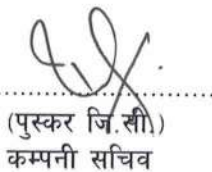 (पुस्कर जि.सी.)
कम्पनी सचिव